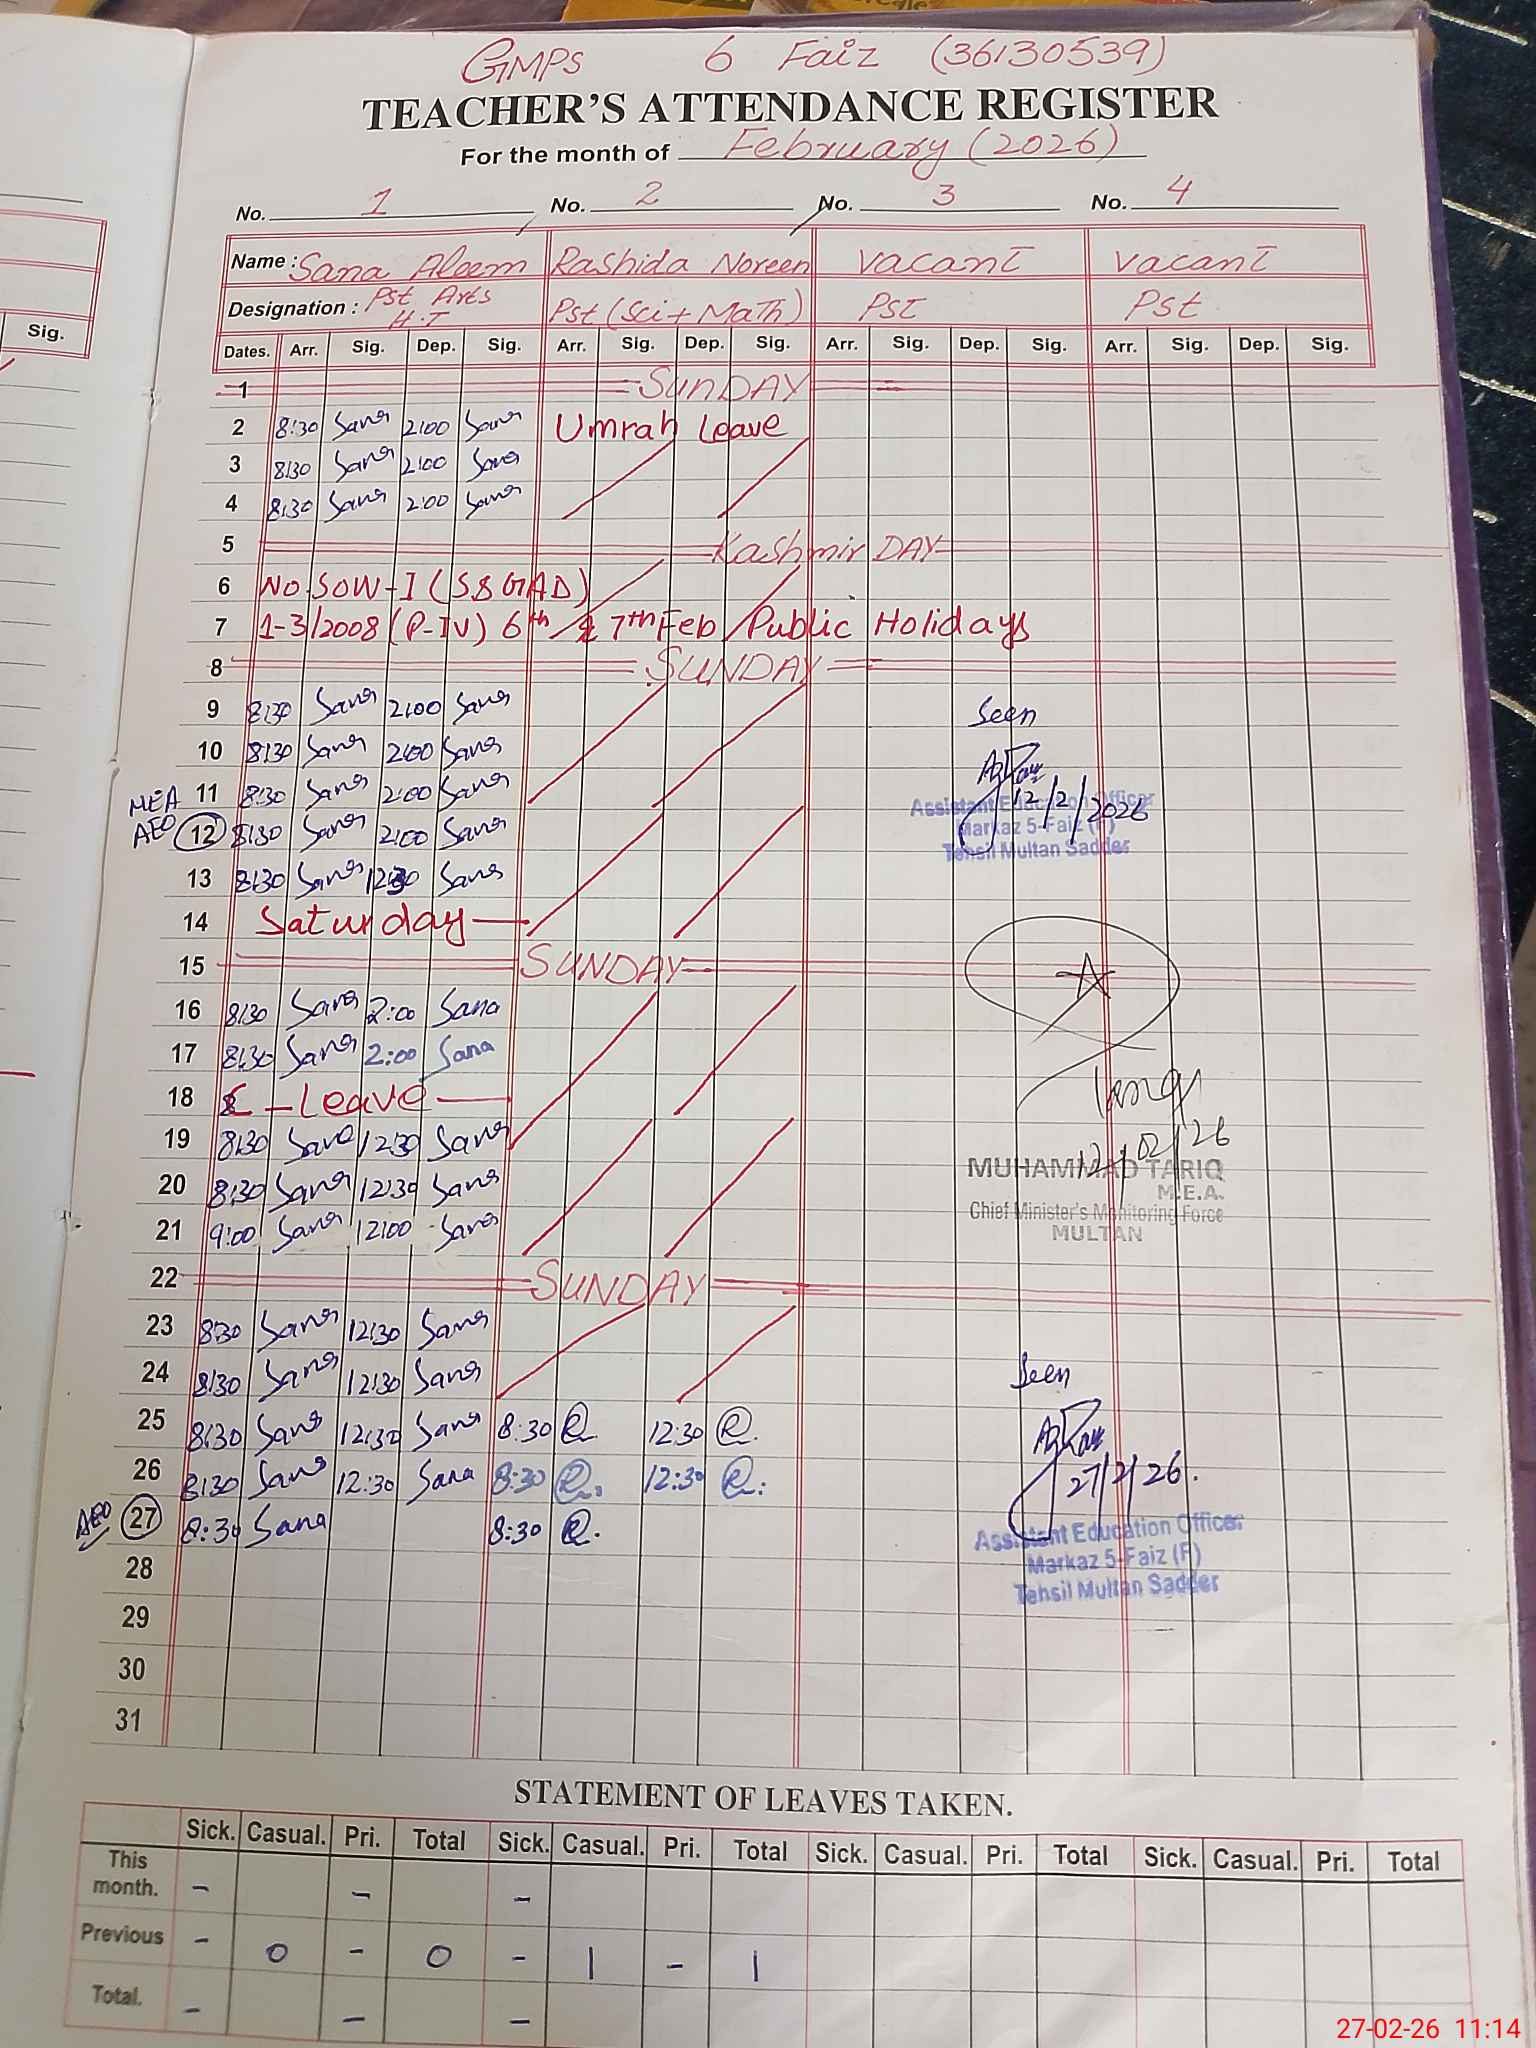 GMPS 6 Faiz (36130539)
TEACHER'S ATTENDANCE REGISTER
For the month of February (2026)
No. 1 No. 2 No. 3 No. 4
Name : Sana Aleem Rashida Noreen Vacant Vacant
Designation : Pst Arts H.T Pst (Sci + Math) Pst Pst
Sig.
Dates. Arr. Sig. Dep. Sig. Arr. Sig. Dep. Sig. Arr. Sig. Dep. Sig. Arr. Sig. Dep. Sig.
1 SUNDAY
2 8:30 Sana 2:00 Sana Umrah Leave
3 8:30 Sana 2:00 Sana
4 8:30 Sana 2:00 Sana
5 Kashmir DAY
6 NO.SOW-I (S&GAD)
7 1-3/2008 (P-IV) 6th & 7th Feb Public Holidays
8 SUNDAY
9 8:30 Sana 2:00 Sana Seen
10 8:30 Sana 2:00 Sana
MEA 11 8:30 Sana 2:00 Sana 12/2/2026
Assistant Education Officer
AEO 12 8:30 Sana 2:00 Sana Markaz 5-Faiz (F)
Tehsil Multan Sadder
13 8:30 Sana 12:30 Sana
14 Saturday
15 SUNDAY
16 8:30 Sana 2:00 Sana
17 8:30 Sana 2:00 Sana
18 C-Leave
19 8:30 Sana 12:30 Sana 12/02/26
20 8:30 Sana 12:30 Sana MUHAMMAD TARIQ
M.E.A.
21 9:00 Sana 12:00 Sana Chief Minister's Monitoring Force
MULTAN
22 SUNDAY
23 8:30 Sana 12:30 Sana
24 8:30 Sana 12:30 Sana Seen
25 8:30 Sana 12:30 Sana 8:30 R 12:30 R.
26 8:30 Sana 12:30 Sana 8:30 R. 12:30 R. 27/2/26.
AEO 27 8:30 Sana 8:30 R. Assistant Education Officer
28 Markaz 5-Faiz (F)
Tehsil Multan Sadder
29
30
31
STATEMENT OF LEAVES TAKEN.
Sick. Casual. Pri. Total Sick. Casual. Pri. Total Sick. Casual. Pri. Total Sick. Casual. Pri. Total
This month. - - -
Previous - 0 - 0 - 1 - 1
Total. - - -
27-02-26 11:14